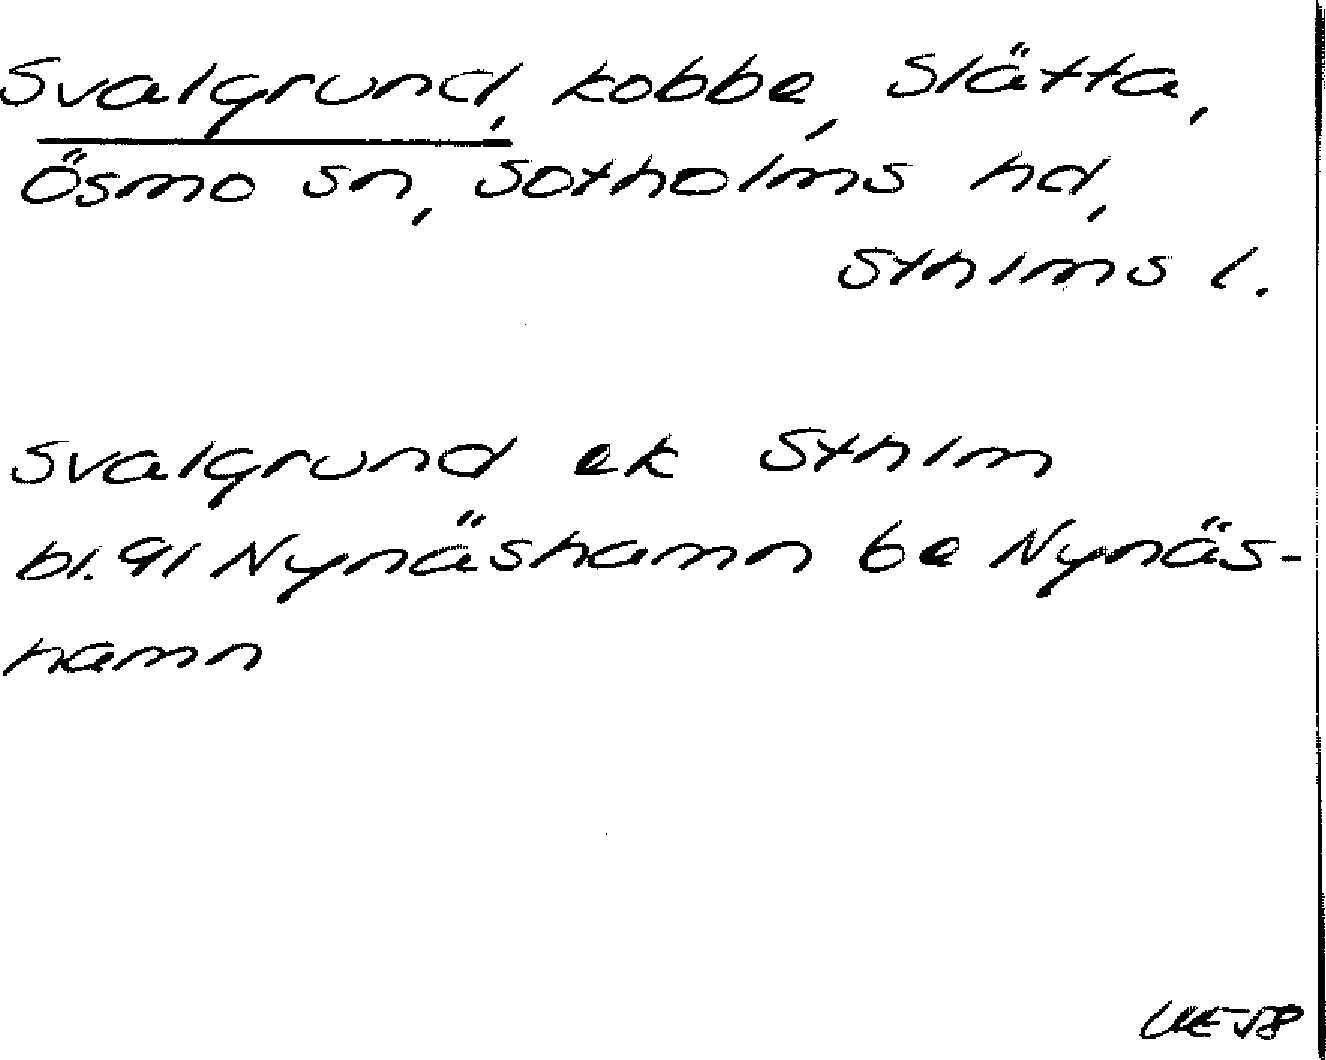 Svalgrund, kobbe, Slätta,
Ösmo sn, Sotholms hd,
Sthlms l.
Svalgrund ek Sthlm
bl. 91 Nynäshamn be Nynäs-
hamn